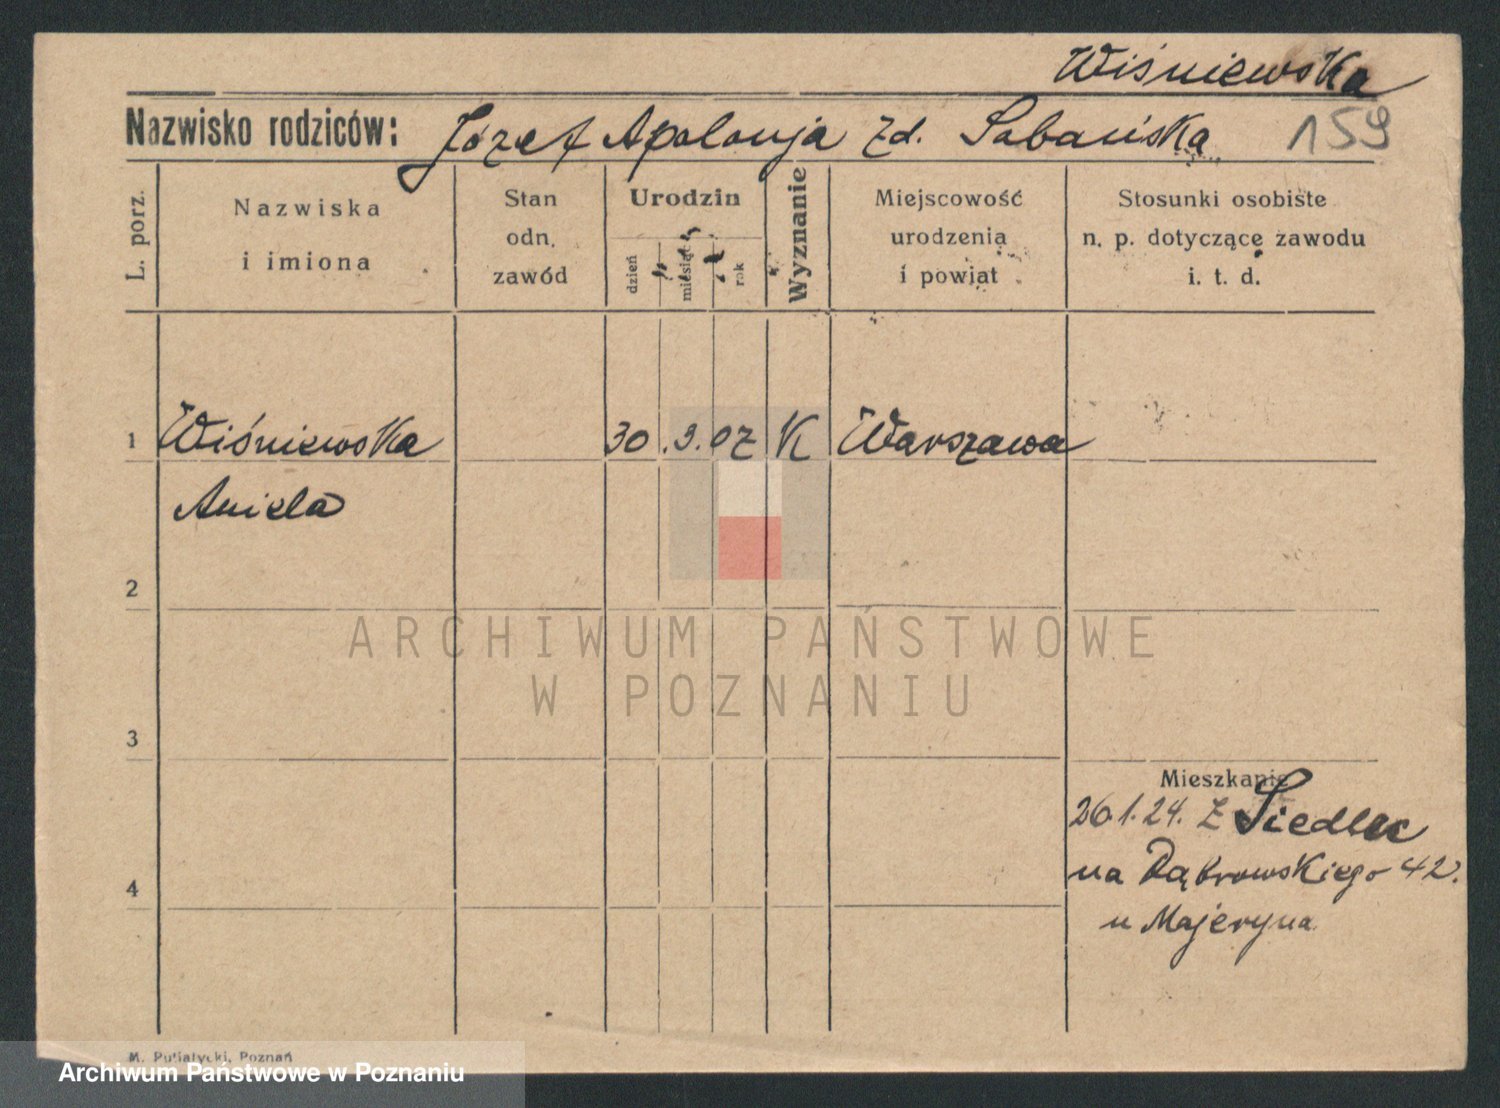 Wiśniewska
Nazwisko rodziców: Józef Apolonja zd. Sobańska 159
L. porz.
Nazwiska
i imiona
Stan
odn.
zawód
Urodzin
dzień
miesiąc
rok
Wyznanie
Miejscowość
urodzenia
i powiat
Stosunki osobiste
n. p. dotyczące zawodu
i. t. d.
1 Wiśniewska 30 .3. 07 K Warszawa
Aniela
2
ARCHIWUM PAŃSTWOWE
W POZNANIU
3
Mieszkanie
26.1.24. z Siedlec
4
na Dąbrowskiego 42.
u Majeryna
M. Putiatycki, Poznań
Archiwum Państwowe w Poznaniu